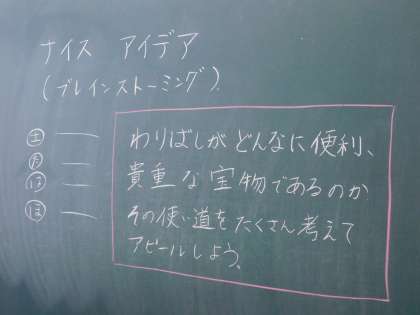 ナイス アイデア
(ブレインストーミング)
わりばしが どんなに 便利、
貴重な宝物であるのか
その使い道をたくさん考えて
アピールしよう。